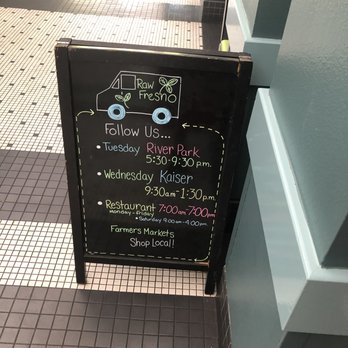 Raw
Fresno
Follow Us...
• Tuesday River Park
5:30-9:30 p.m.
• Wednesday Kaiser
9:30am-1:30pm
• Restaurant 7:00am-7:00pm
monday-friday
• Saturday 9:00am-4:00pm
Farmers Markets
Shop Local!